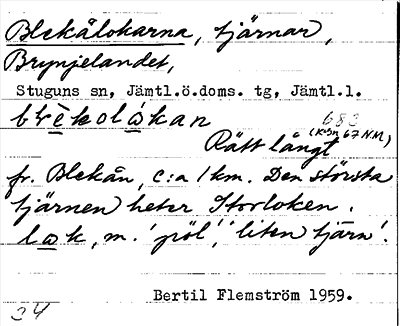 Blekålokarna, tjärnar,
Brynjelandet,
Stuguns sn, Jämtl.ö.doms. tg, Jämtl.l.
683
(Ksn 67 N.M)
Rätt långt
fr. Blekån, c:a 1 km. Den största
tjärnen heter Storloken.
lak, m. 'pöl', 'liten tjärn'.
Bertil Flemström 1959.
34